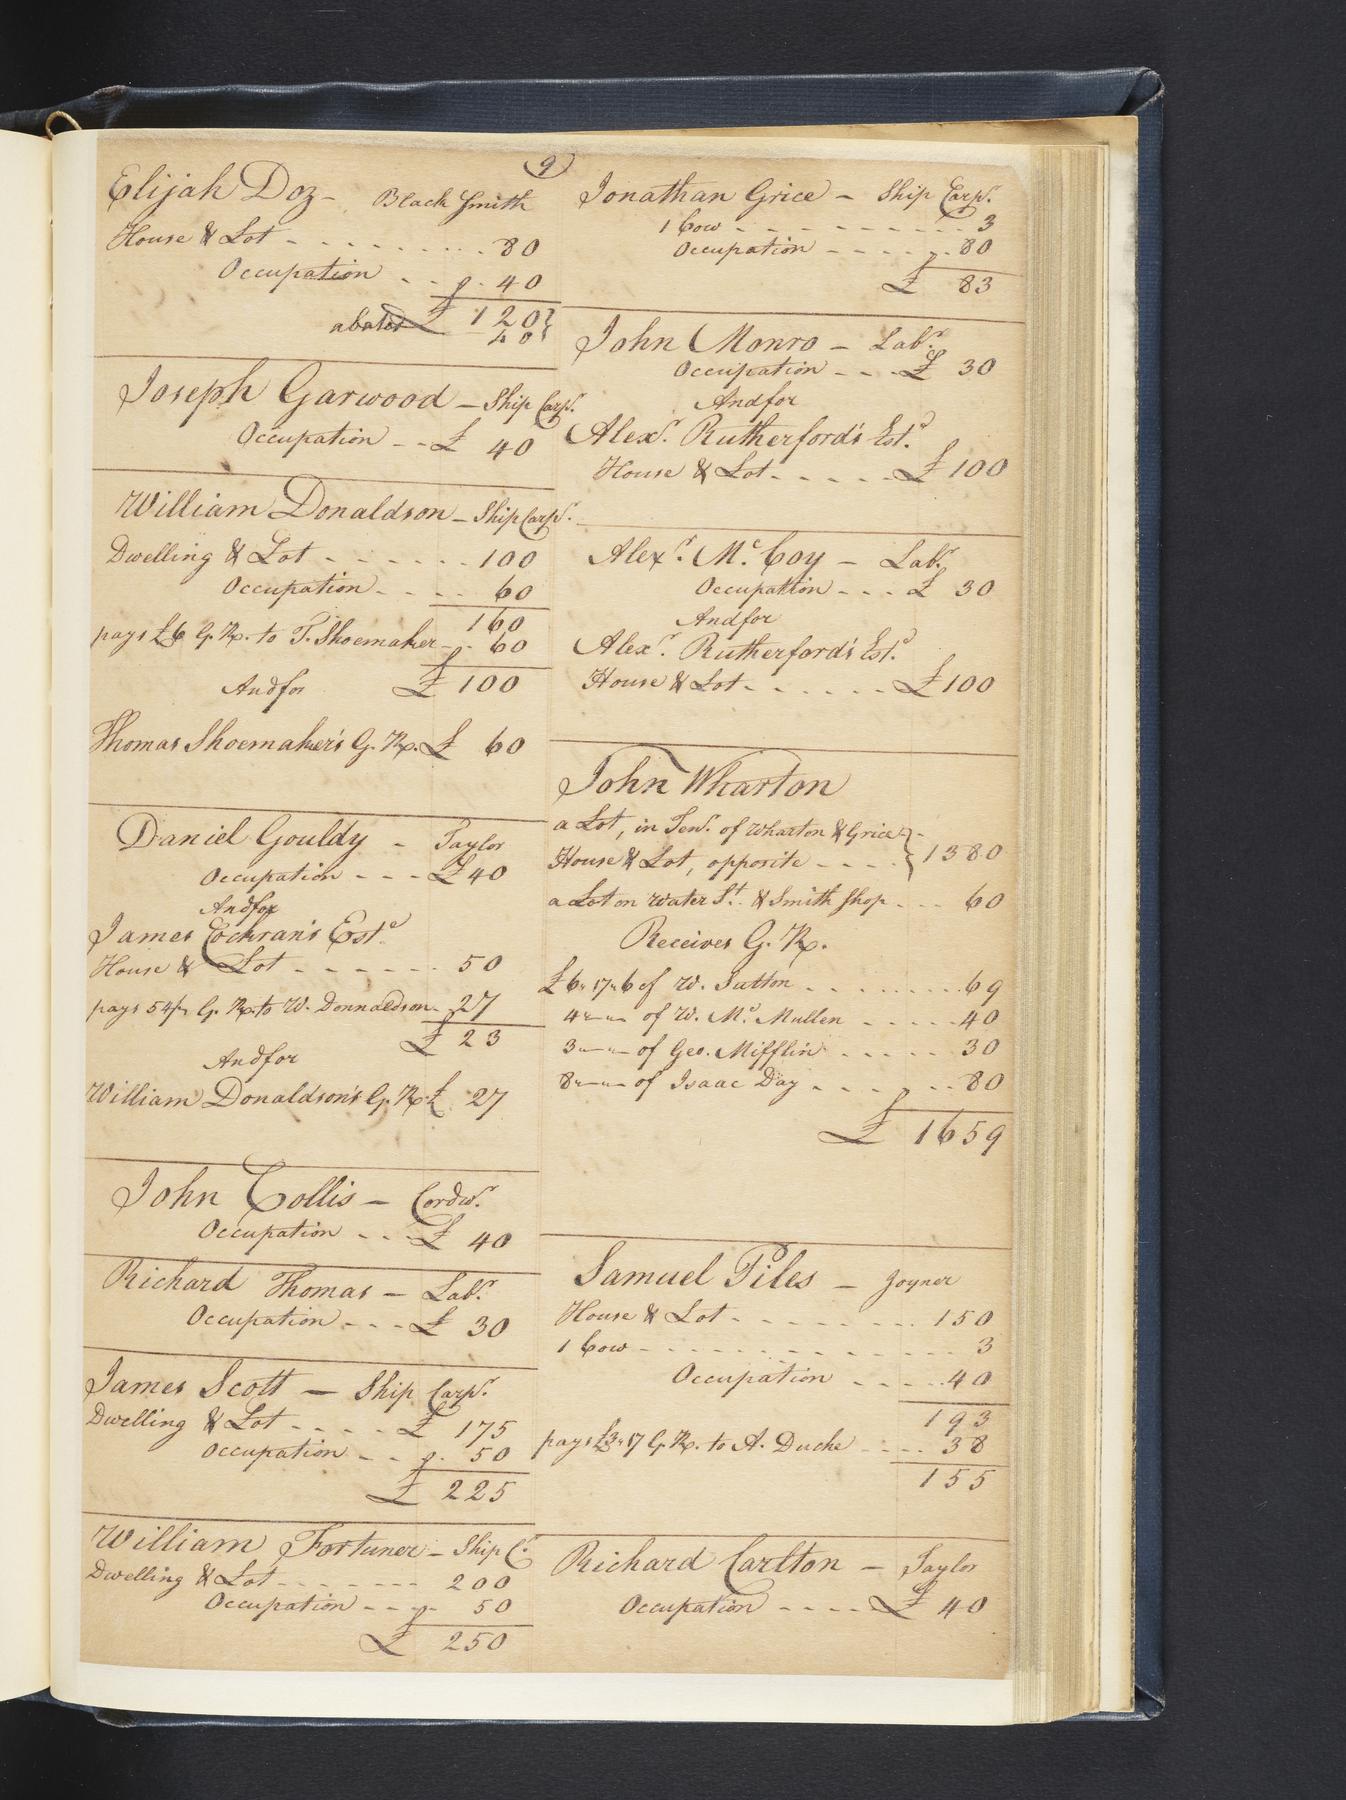 9
Elijah Doz - Black Smith
House & Lot - - - - - - - - 80
Occupation - - - 40
abated £ 120
40
Joseph Garwood - Ship Carpr.
Occupation - - £ 40
William Donaldson - Ship Carpr.
Dwelling & Lot - - - - - - 100
Occupation - - - - 60
160
pays £6 G. R. to T. Shoemaker - - 60
Andfor £ 100
Thomas Shoemaker's G. R. £ 60
Daniel Gouldy - Taylor
Occupation - - - £ 40
Andfor
James Cockran's Este.
House & Lot - - - - - - 50
pays 54/ G. R. to W. Donnaldson - 27
£ 23
Andfor
William Donaldson's G. R. £ 27
John Collis - Cordwr.
Occupation - - - £ 40
Richard Thomas - Labr.
Occupation - - - £ 30
James Scott - Ship Carpr.
Dwelling & Lot - - - - £ 175
Occupation - - - 50
£ 225
William Fortuner - Ship Cr.
Dwelling & Lot - - - - - - - 200
Occupation - - - - 50
£ 250
Jonathan Grice - Ship Carpr.
1 Cow - - - - - - - - - - 3
Occupation - - - - - 80
£ 83
John Monro - Labr.
Occupation - - - £ 30
Andfor
Alexr. Rutherford's Estd.
House & Lot - - - - - £ 100
Alexr. Mc. Coy - Labr.
Occupation - - - £ 30
Andfor
Alexr. Rutherford's Estd.
House & Lot - - - - - - £ 100
John Wharton
a Lot, in Tenr. of Wharton & Grice -
House & Lot, opposite - - - - 1380
a Lot on Water St. & Smith Shop - - - 60
Receives G. R.
£6 " 17 " 6 of W. Sutton - - - - - - - - 69
4 " - " - of W. Mc. Mullen - - - - - 40
3 " - " - of Geo. Mifflin - - - - - 30
8 " - " - of Isaac Day - - - - - - 80
£ 1659
Samuel Piles - Joyner
House & Lot - - - - - - - - 150
1 Cow - - - - - - - - - - - - 3
Occupation - - - - - 40
193
pays £3 " 17 G. R. to A. Duche - - - - 38
155
Richard Carlton - Taylor
Occupation - - - - £ 40